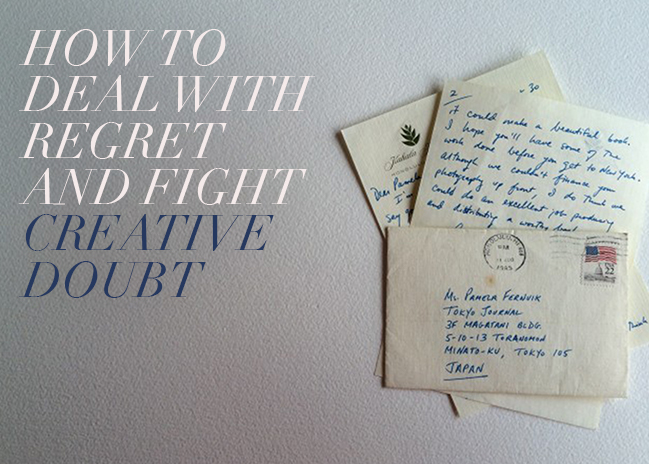 HOW TO
DEAL WITH
REGRET
AND FIGHT
CREATIVE
DOUBT
2
30
it could make a beautiful book.
I hope you'll have some of the
work done before you get to New York.
Although we couldn't finance your
photography up front, I do think we
could do an excellent job producing
and distributing a worthy
Kahala
Dear Pamela
I
say
1985
USA
22
Ms. PAMELA
TOKYO JOURNAL
3F MAGATANI BLDG.
5-10-13 TORANOMON
MINATO-KU, TOKYO 105
JAPAN